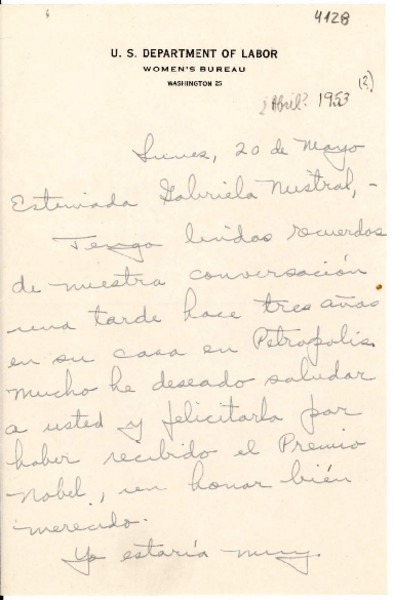 4128
U. S. DEPARTMENT OF LABOR
WOMEN'S BUREAU
WASHINGTON 25
¿Abril? 1953 (?)
Lunes, 20 de Mayo
Estimada Gabriela Mistral, -
Tengo lindos recuerdos
de nuestra conversación
una tarde hace tres años
en su casa en Petropolis.
Mucho he deseado saludar
a usted y felicitarla por
haber recibido el Premio
Nobel, un honor bién
merecido.
Yo estaría muy